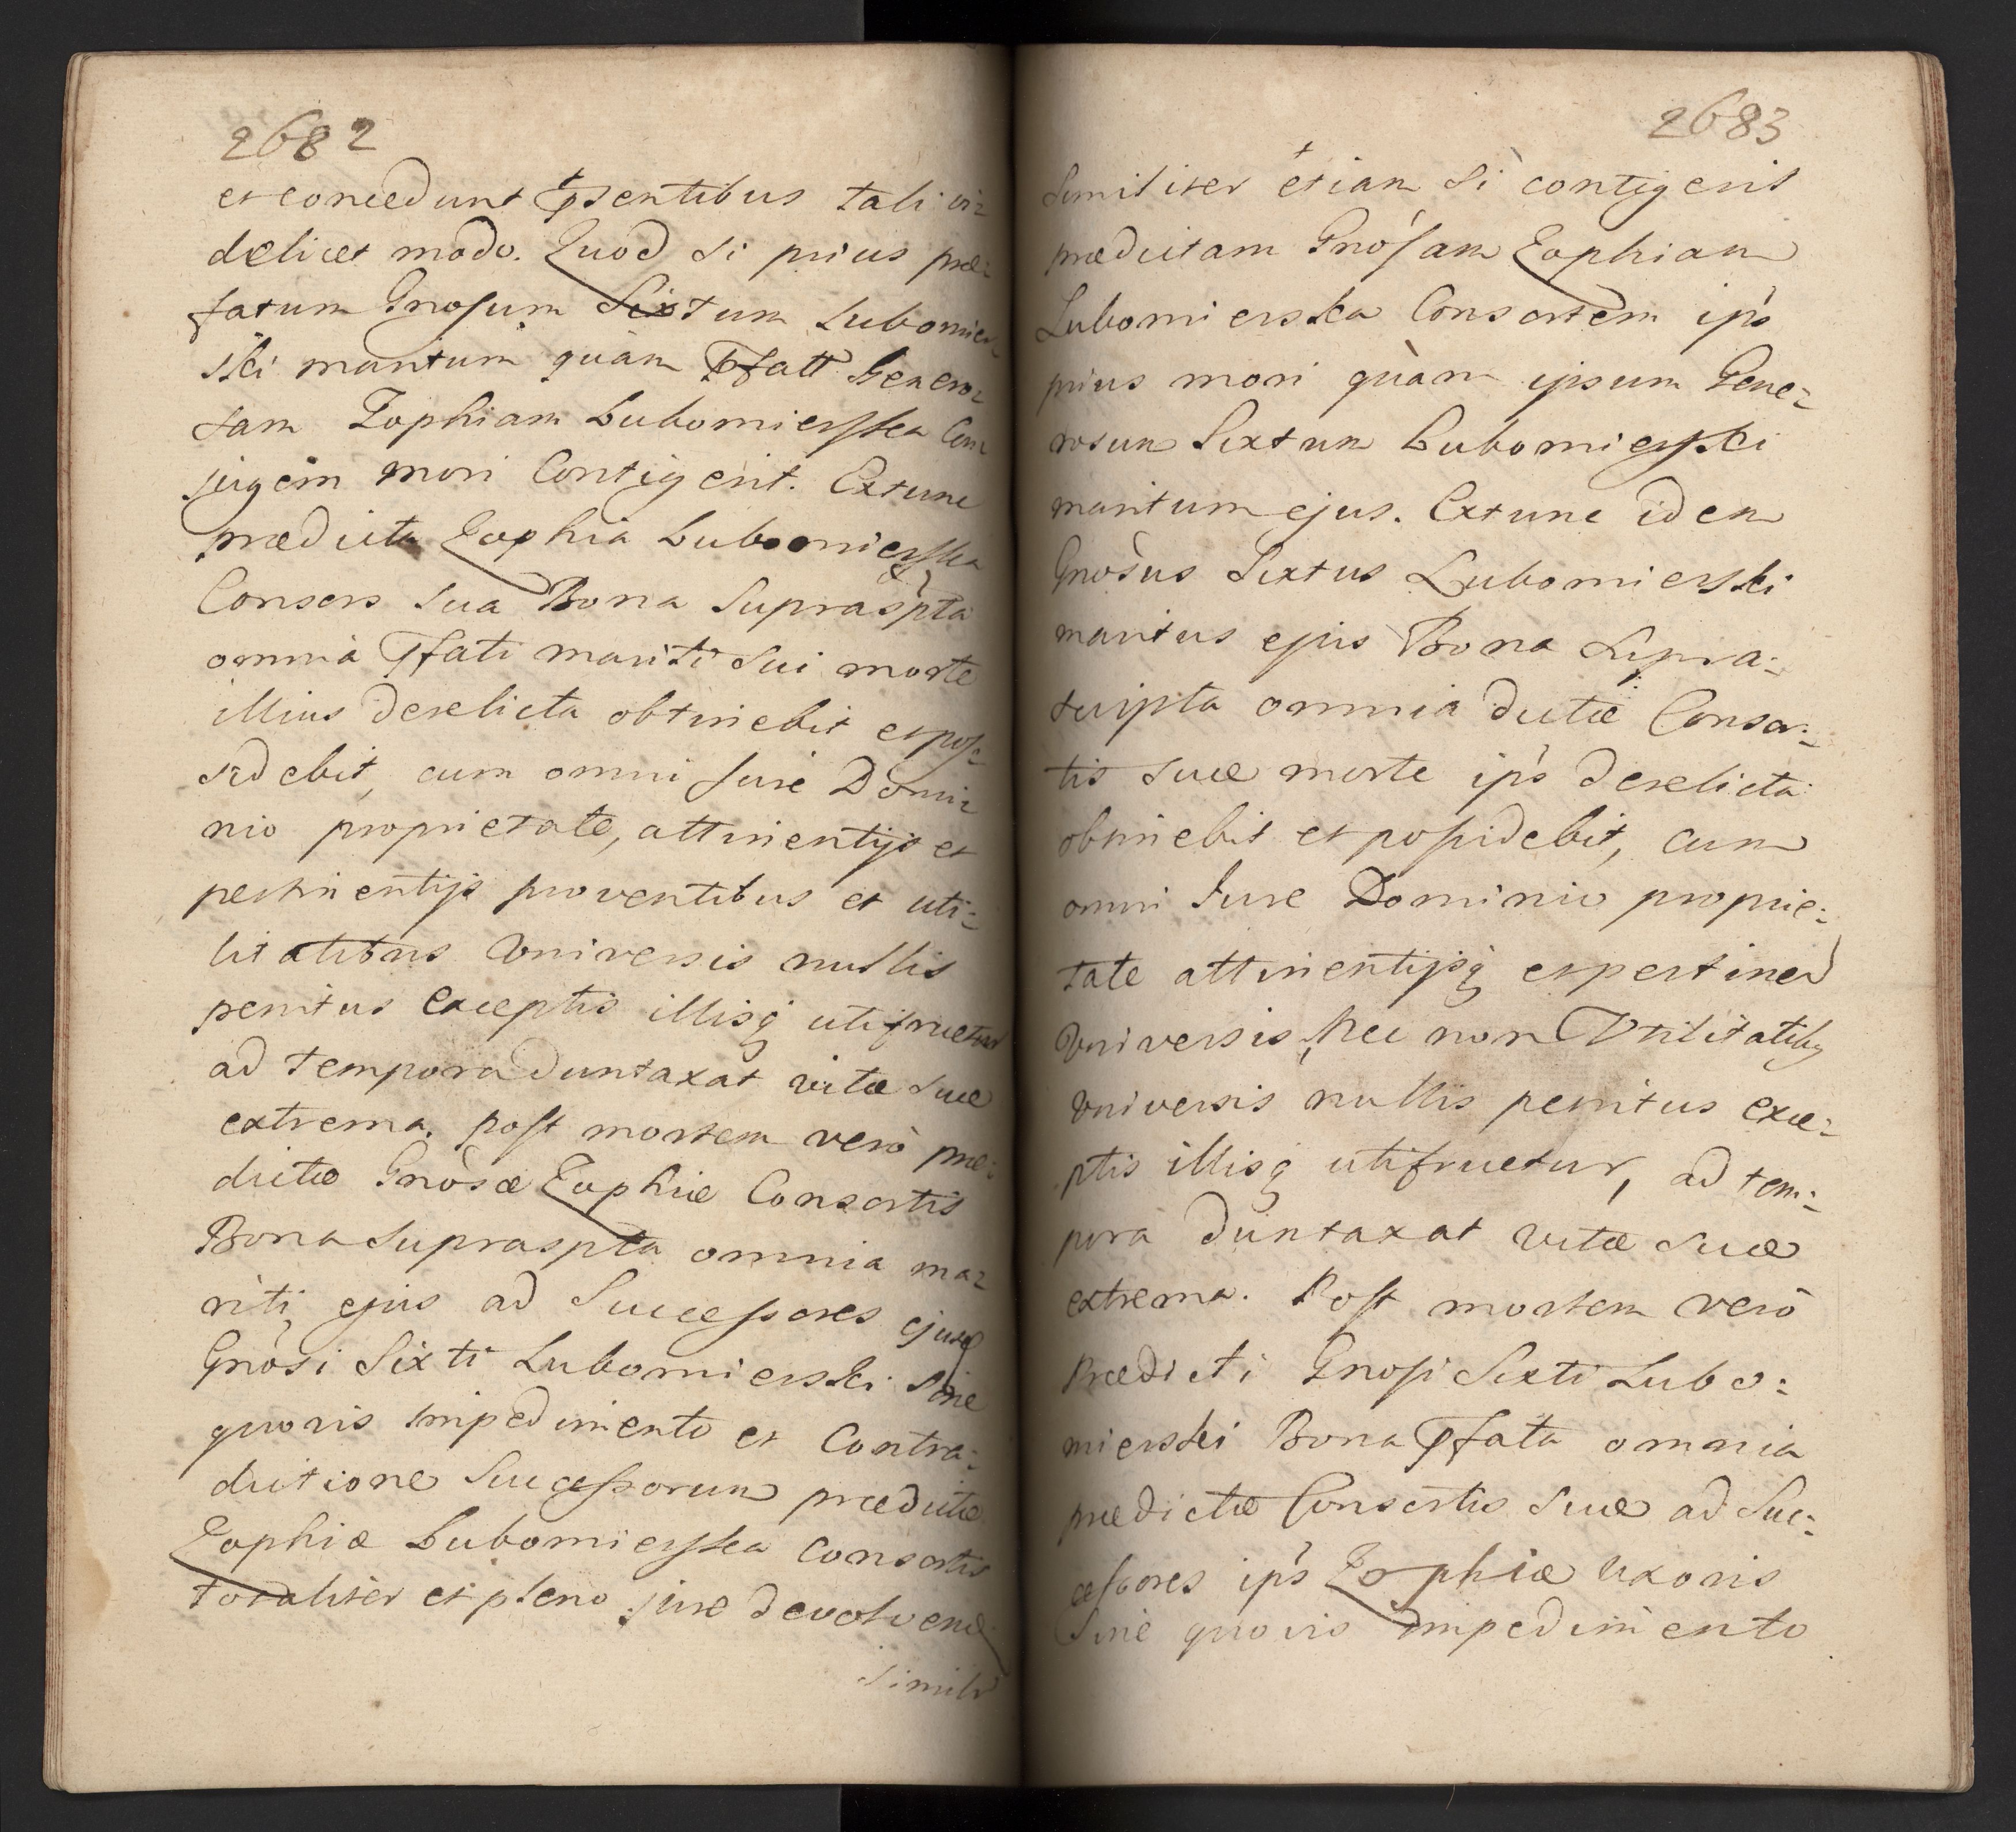 2682
et concedunt p͞sentibus tali vi=
delicet modo. Quod si prius præ=
fatum Gnosum Sixtum Lubomier
ski maritum quàm Pfatt Genero=
sam Zophiam Lubomierska Con
jugem mori Contigerit. Extunc
prædicta Zophia Lubomierska
Consors sua Bona Suprasp̀ta
omnia Pfati mariti sui morte
illius derelicta obtinebit et pos=
sidebit, cum omni jure Domi=
nio proprietate, attinentijs et
pertinentijs proventibus et uti=
litatibus Universis nullis
penitus exceptis illisq utifruetur
ad tempora duntaxat vitæ suæ
extrema. post mortem verò præ=
dictæ Gnòsæ Zophiæ Consortis
Bona Supraspta omnia ma=
riti ejus ad Successores ejusd
Gnòsi Sixti Lubomierski sine
quovis impedimento et Contra=
dictione Successorum prædictæ
Zophiæ Lubomierska Consortis
totaliter et pleno jure devolvend
Similr
2683
Similiter etiam si contigerit
prædictam Gnósam Zophiam
Lubomierska Consortem ip̀s
prius mori quàm ipsum Gene=
rosum Sixtum Lubomierski
maritum ejus. Extunc idem
Gnòsus Sixtus Lubomierski
maritus ejus Bona Supra=
scripta omnia dictæ Conso=
tis suæ morte ip̀s derelicta
obtinebit et possidebit, cum
omni Jure Dominio proprie=
tate attinentijsq et pertinen
Universis, Nec non Utilitatibq
Universis nullis penitus exce=
ptis illisq utifruetur, ad tem=
pora duntaxat vitæ suæ
extrema. Post mortem verò
Prædicti Gnosi Sixti Lubo=
mierski Bona Pfata omnia
prædictæ Consortis suæ ad Suc=
cessores ip̀s Zophiæ Uxoris
Sine quovis impedimento